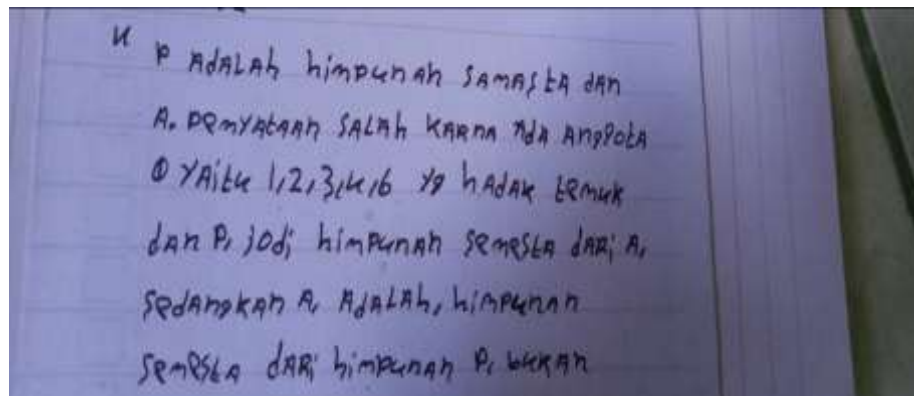 4
P ADALAH himpunAh SAMASTA dAn
A. PeMYAtAAn SALAh KARnA AdA AngPotA
YAitu 1,2,3,4,6 Yg hAdAK temuK
dAn P, jOdi himPunAh SemeStA dARi A,
SedAngKAn A, AdALAh, himpunAn
SemeStA dARi himPunAh P, buKAn